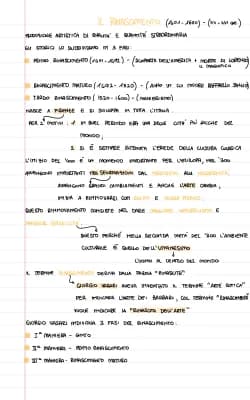 IL RINASCIMENTO (1401-1600) - (XV-XVI SEC)
PRODUZIONE ARTISTICA DI QUALITÀ E QUANTITÀ STRAORDINARIA
GLI STORICI LO SUDDIVIDONO IN 3 FASI:
PRIMO RINASCIMENTO (1401-1492) - (SCOPERTA DELL'AMERICA + MORTE DI LORENZO IL MAGNIFICO
RINASCIMENTO MATURO (1492-1520) - (ANNO IN CUI MUORE RAFFAELLO SANZIO)
TARDO RINASCIMENTO (1520-1600) - (MANIERISMO)
NASCE A FIRENZE E SI SVILUPPA IN TUTTA L'ITALIA
PER 2 MOTIVI: 1. IN QUEL PERIODO ERA UNA DELLE CITTÀ PIÙ RICCHE DEL
MONDO;
2. SI È SEMPRE RITENUTA L'EREDE DELLA CULTURA CLASSICA
L'INIZIO DEL '400 È UN MOMENTO IMPORTANTE PER L'EVOLUZIONE, NEL '300
AVVENGONO IMPORTANTI TRASFORMAZIONI DAL
AVVENGONO GRANDI CAMBIAMENTI E ANCHE L'ARTE CAMBIA,
INIZIA A RINNOVARSI CON GIOTTO E
QUESTO RINNOVAMENTO CONSISTE NEL DARE
QUESTO PERCHÉ NELLA SECONDA METÀ DEL '300 L'AMBIENTE
CULTURALE È QUELLO DELL'UMANESIMO
L'UOMO AL CENTRO DEL MONDO
IL TERMINE RINASCIMENTO DERIVA DALLA PAROLA "RINASCITA"
GIORGIO VASARI AVEVA INVENTATO IL TERMINE "ARTE GOTICA"
PER INDICARE L'ARTE DEI BARBARI, COL TERMINE "RINASCIMENTO"
VUOLE INDICARE LA "RINASCITA DELL'ARTE"
GIORGIO VASARI INDIVIDUA 3 FASI DEL RINASCIMENTO:
I° MANIERA - GIOTTO
II° MANIERA - PRIMO RINASCIMENTO
III° MANIERA - RINASCIMENTO MATURO